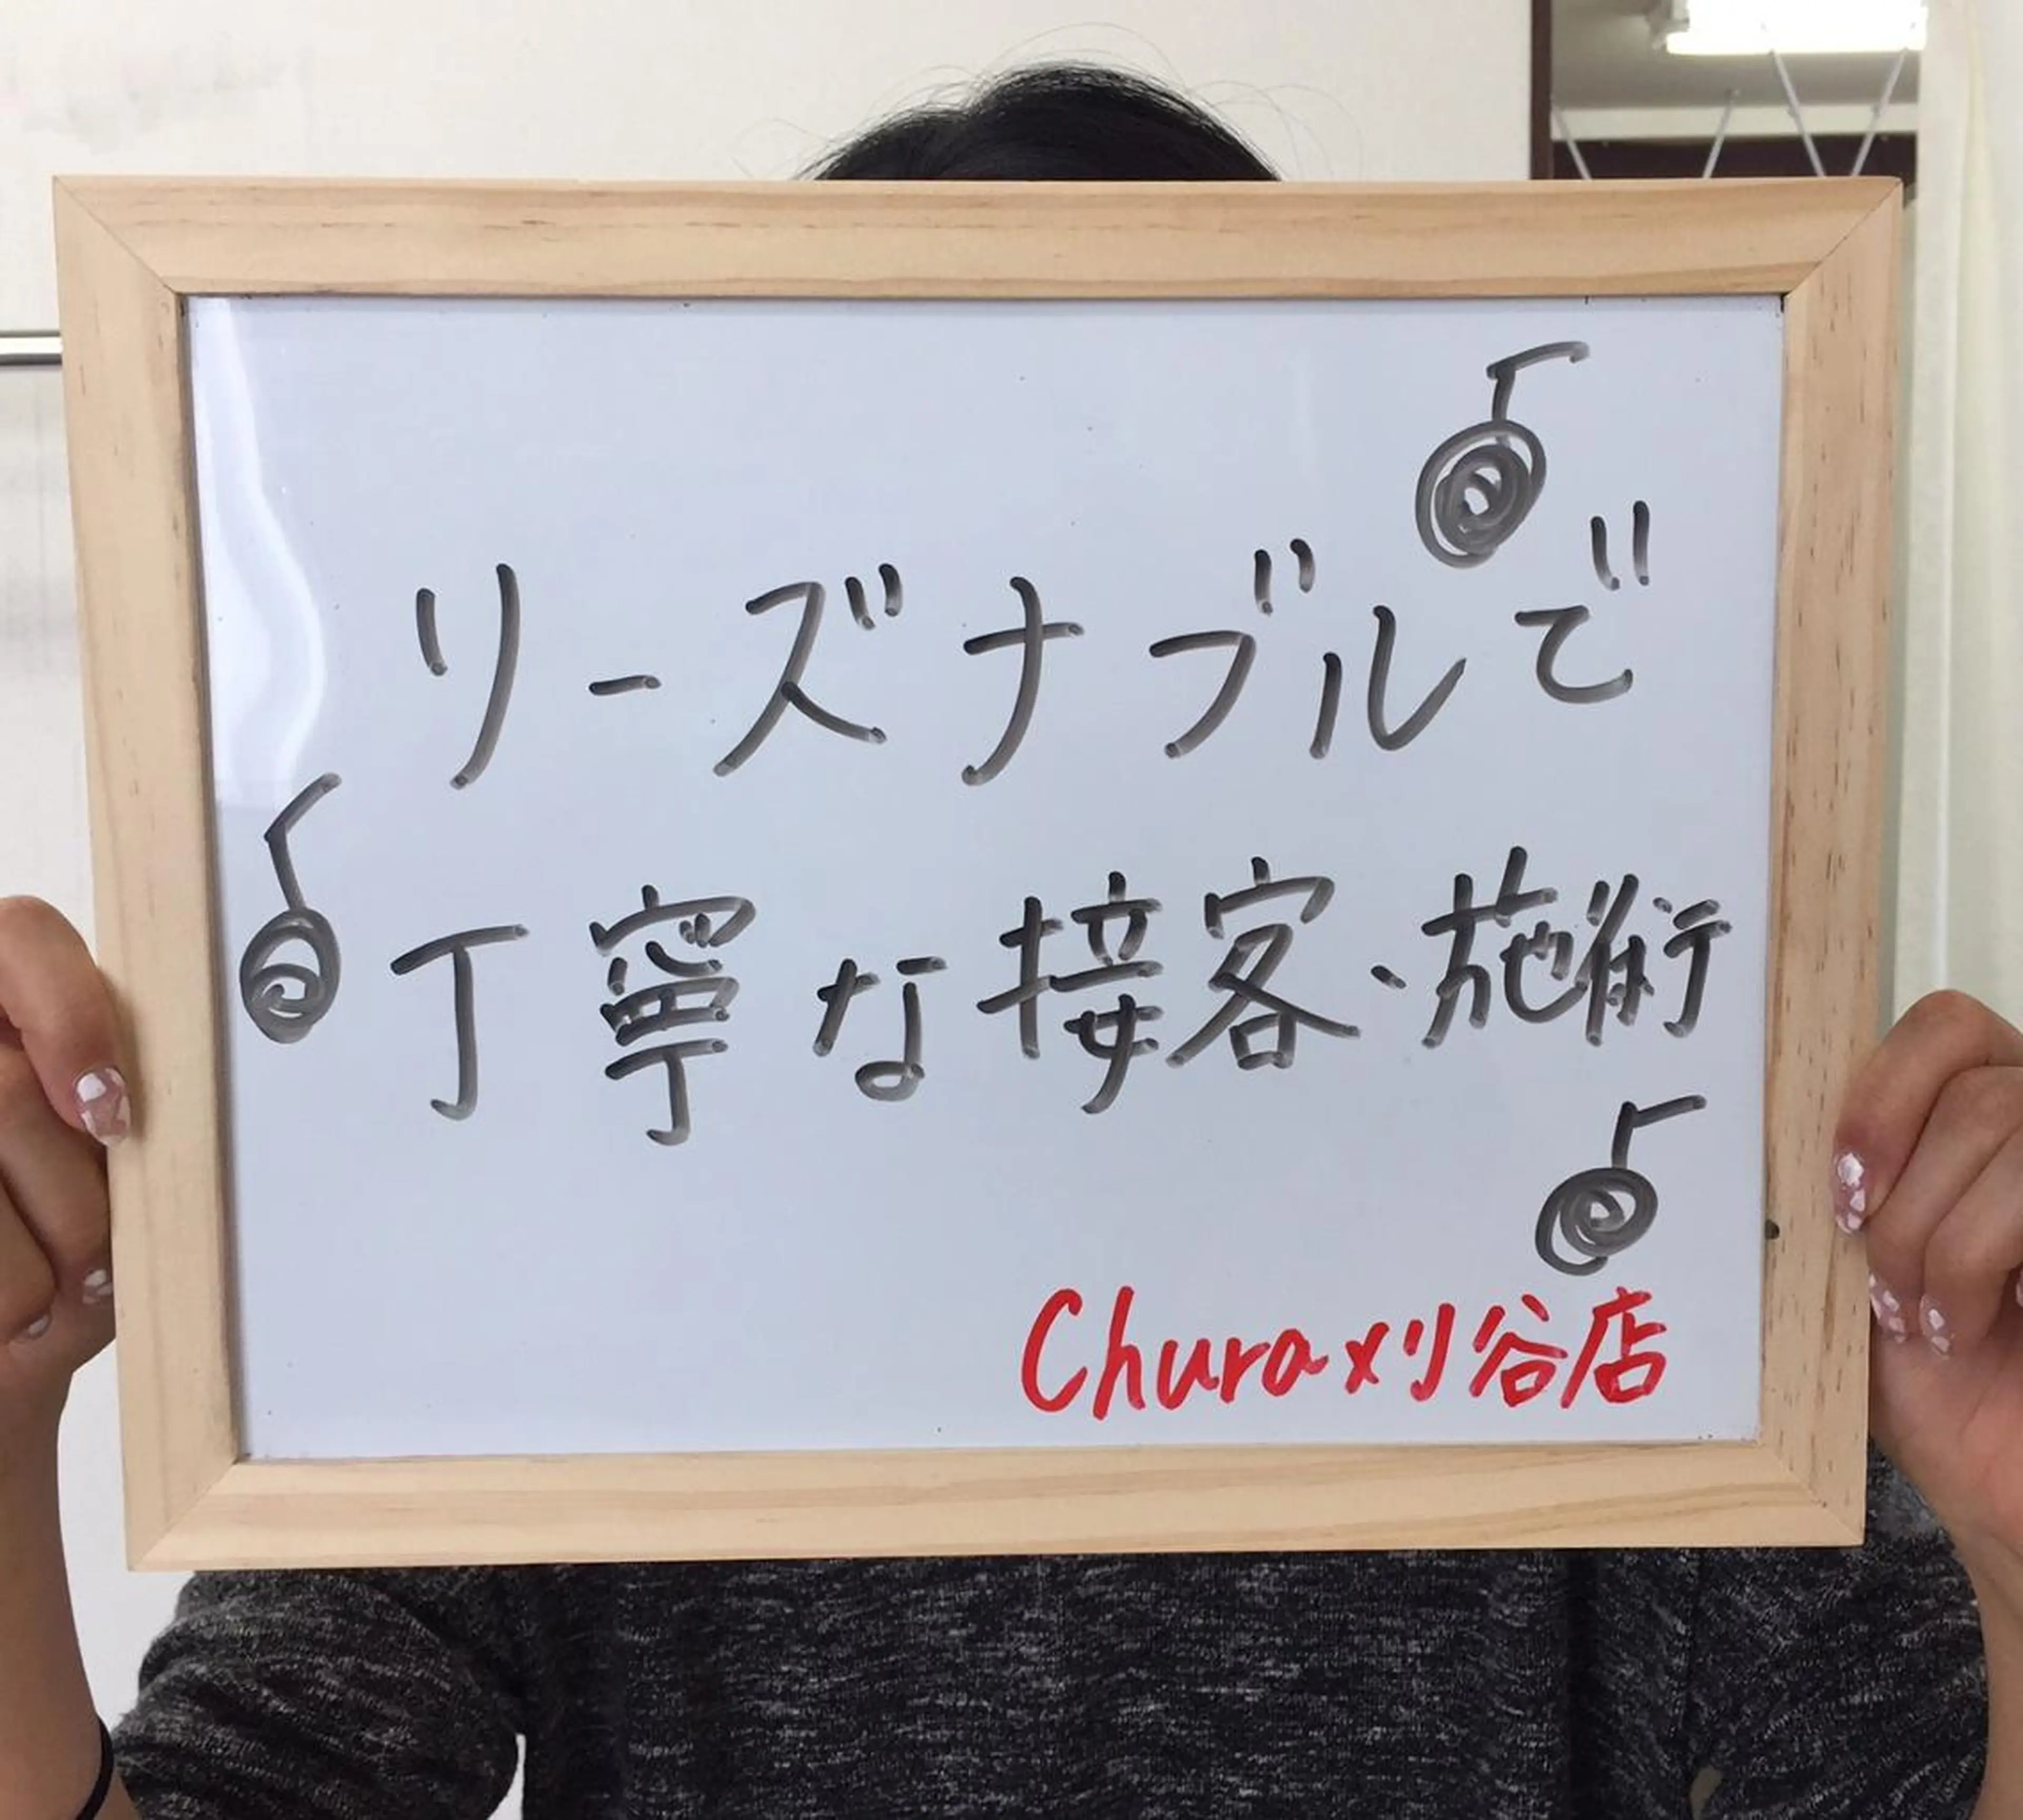 リーズナブルで
丁寧な接客、施術
Chura刈谷店